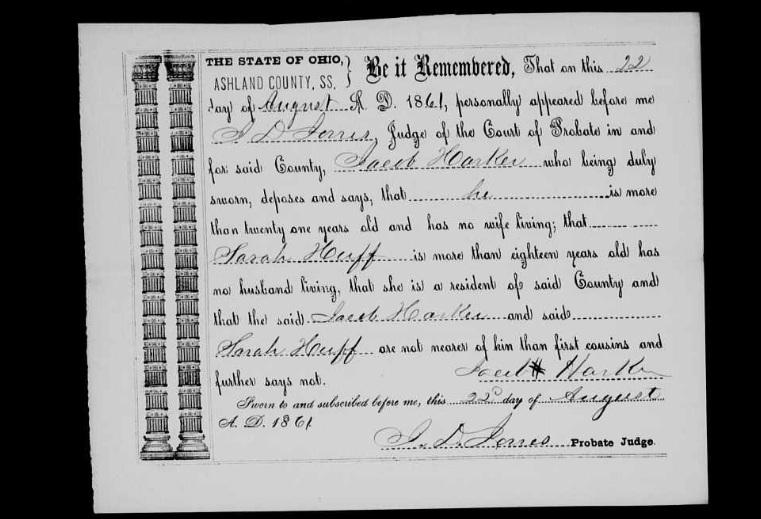 THE STATE OF OHIO,
ASHLAND COUNTY, SS. } Be it Remembered, That on this 22
day of August A. D. 1861, personally appeared before me
J D Jones, Judge of the Court of Probate in and
for said County, Jacob Harker who being duly
sworn, deposes and says, that he is more
than twenty one years old and has no wife living; that
Sarah Huff is more than eighteen years old has
no husband living, that she is a resident of said County and
that the said Jacob Harker and said
Sarah Huff are not nearer of kin than first cousins and
further says not. Jacob Harker
Sworn to and subscribed before me, this 22d day of August
A. D. 1861
J. D. Jones Probate Judge.